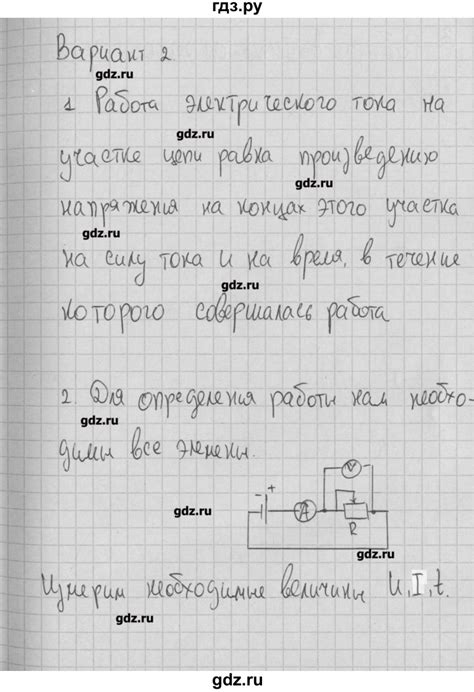 гдз.ру
Вариант 2
gdz.ru
1 Работа электрического тока на
gdz.ru
участке цепи равна произведению
gdz.ru
напряжения на концах этого участка
на силу тока и на время, в течение
gdz.ru
которого совершалась работа
2. Для определения работы нам необхо-
gdz.ru
димы все элемены.
gdz.ru
- +
V
A
R
Измерим необходимые величины U, I, t.
gdz.ru
gdz.ru